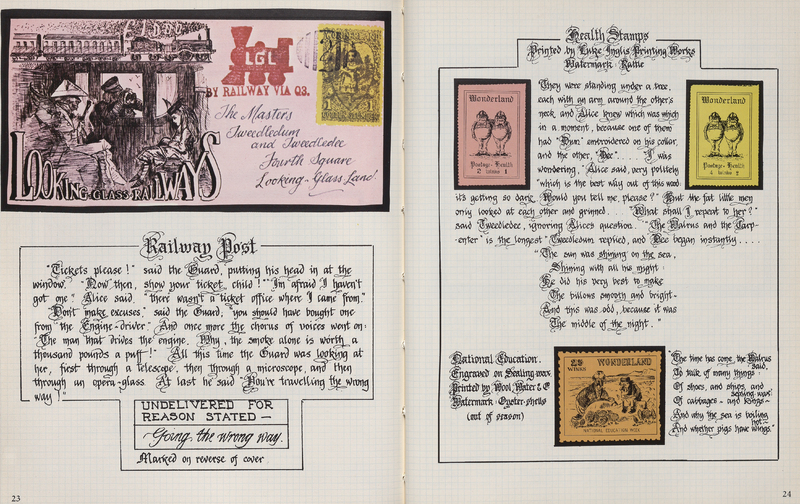 LGL
BY RAILWAY VIA Q3.
The Masters
Tweedledum
and Tweedledee
Fourth Square
Looking-Glass Land
LOOKING-GLASS RAILWAYS
Railway Post
"Tickets please!" said the Guard, putting his head in at the
window. "Now then, show your ticket, child!" "I'm afraid I haven't
got one" Alice said. "there wasn't a ticket office where I came from."
"Don't make excuses," said the Guard, "you should have bought one
from the Engine-driver." And once more the chorus of voices went on:
The man that drives the engine. Why, the smoke alone is worth a
thousand pounds a puff!" All this time the Guard was looking at
her, first through a telescope, then through a microscope, and then
through an opera-glass. At last he said "You're travelling the wrong
way!"
UNDELIVERED FOR
REASON STATED —
Going the wrong way.
Marked on reverse of cover
23
Health Stamps
Printed by Luke Inglis Printing Works
Watermark: Rattle
Wonderland
Postage - Health
2 1
Wonderland
Postage - Health
They were standing under a tree,
each with an arm around the other's
neck and Alice knew which was which
in a moment, because one of them
had "Dum" embroidered on his collar,
and the other, "Dee" .... "I was
wondering," Alice said, very politely
"which is the best way out of this wood:
it's getting so dark. Would you tell me, please?" But the fat little men
only looked at each other and grinned .... "What shall I repeat to her?"
said Tweedledee, ignoring Alice's question. "The Walrus and the Carp-
enter' is the longest" Tweedledum replied, and Dee began instantly ....
"The sun was shining on the sea,
Shining with all his might:
He did his very best to make
The billows smooth and bright-
And this was odd, because it was
The middle of the night."
National Education.
Engraved on Sealing-wax
Printed by Wool, Water & Co
Watermark: Oyster-shells
(out of season)
25
WINKS
WONDERLAND
NATIONAL EDUCATION WEEK
"The time has come, the Walrus said,
To talk of many things:
Of shoes, and ships, and sealing wax
Of cabbages - and kings -
And why the sea is boiling hot -
And whether pigs have wings."
24